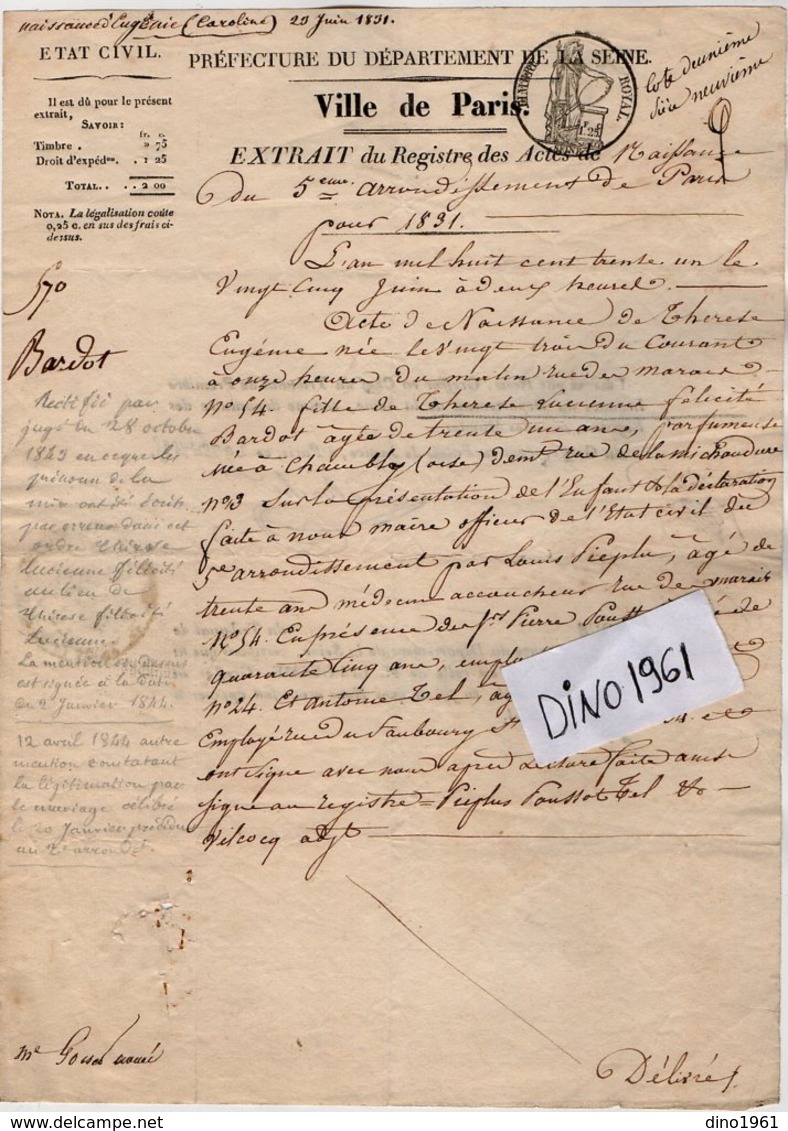 naissance d'Eugénie (Caroline) 23 Juin 1831.
ETAT CIVIL.
Il est dû pour le présent
extrait,
SAVOIR:
fr. c.
Timbre. . . . . . » 75
Droit d'expéd.on. . 1 25
TOTAL. . . 2 00
NOTA. La légalisation coûte
0,25 c. en sus des frais ci-
dessus.
570
Bardot
Rectifié par
jugt du 28 octobre
1843 en ce que les
prénoms de la
mère ont été écrits
par erreur dans cet
ordre Thérèse
Lucienne félicité
au lieu de
Thérèse félicité
Lucienne.
La mention ci-dessus
est signée à la date
du 2 Janvier 1844.
12 avril 1844 autre
mention constatant
la légitimation par
le mariage célébré
le 20 Janvier précédent
au 2e arrondt.
PRÉFECTURE DU DÉPARTEMENT DE LA SEINE.
Ville de Paris.
TIMBRE ROYAL.
1F 25
cote deuxième
pièce neuvième
EXTRAIT du Registre des Actes de Naissance
du 5eme arrondissement de Paris
pour 1831.
L'an mil huit cent trente un le
Vingt Cinq Juin à deux heures.
Acte de Naissance de Therese
Eugénie née le Vingt trois du Courant
à onze heures du matin rue des marais
No 54. fille de Therese Lucienne felicité
Bardot agée de trente un ans, parfumeuse
née à Chambly (oise) demt rue de la michaudiere
no 3 Sur la présentation de l'Enfant & la déclaration
faite à nous maire officier de l'Etat civil du
5e arrondissement par Louis Pieplu, âgé de
trente ans médecin accoucheur rue des marais
No 54. En présence de Srs Pierre Poussot
quarante Cinq ans,
no 24. Et Antoine Tel,
Employé rue du Faubourg St
ont Signé avec nous après Lecture faite ainsi
signé au registre = Pieplus Poussot Tel &
Vilcocq adjt
DINO 1961
Me
Délivré
dino1961